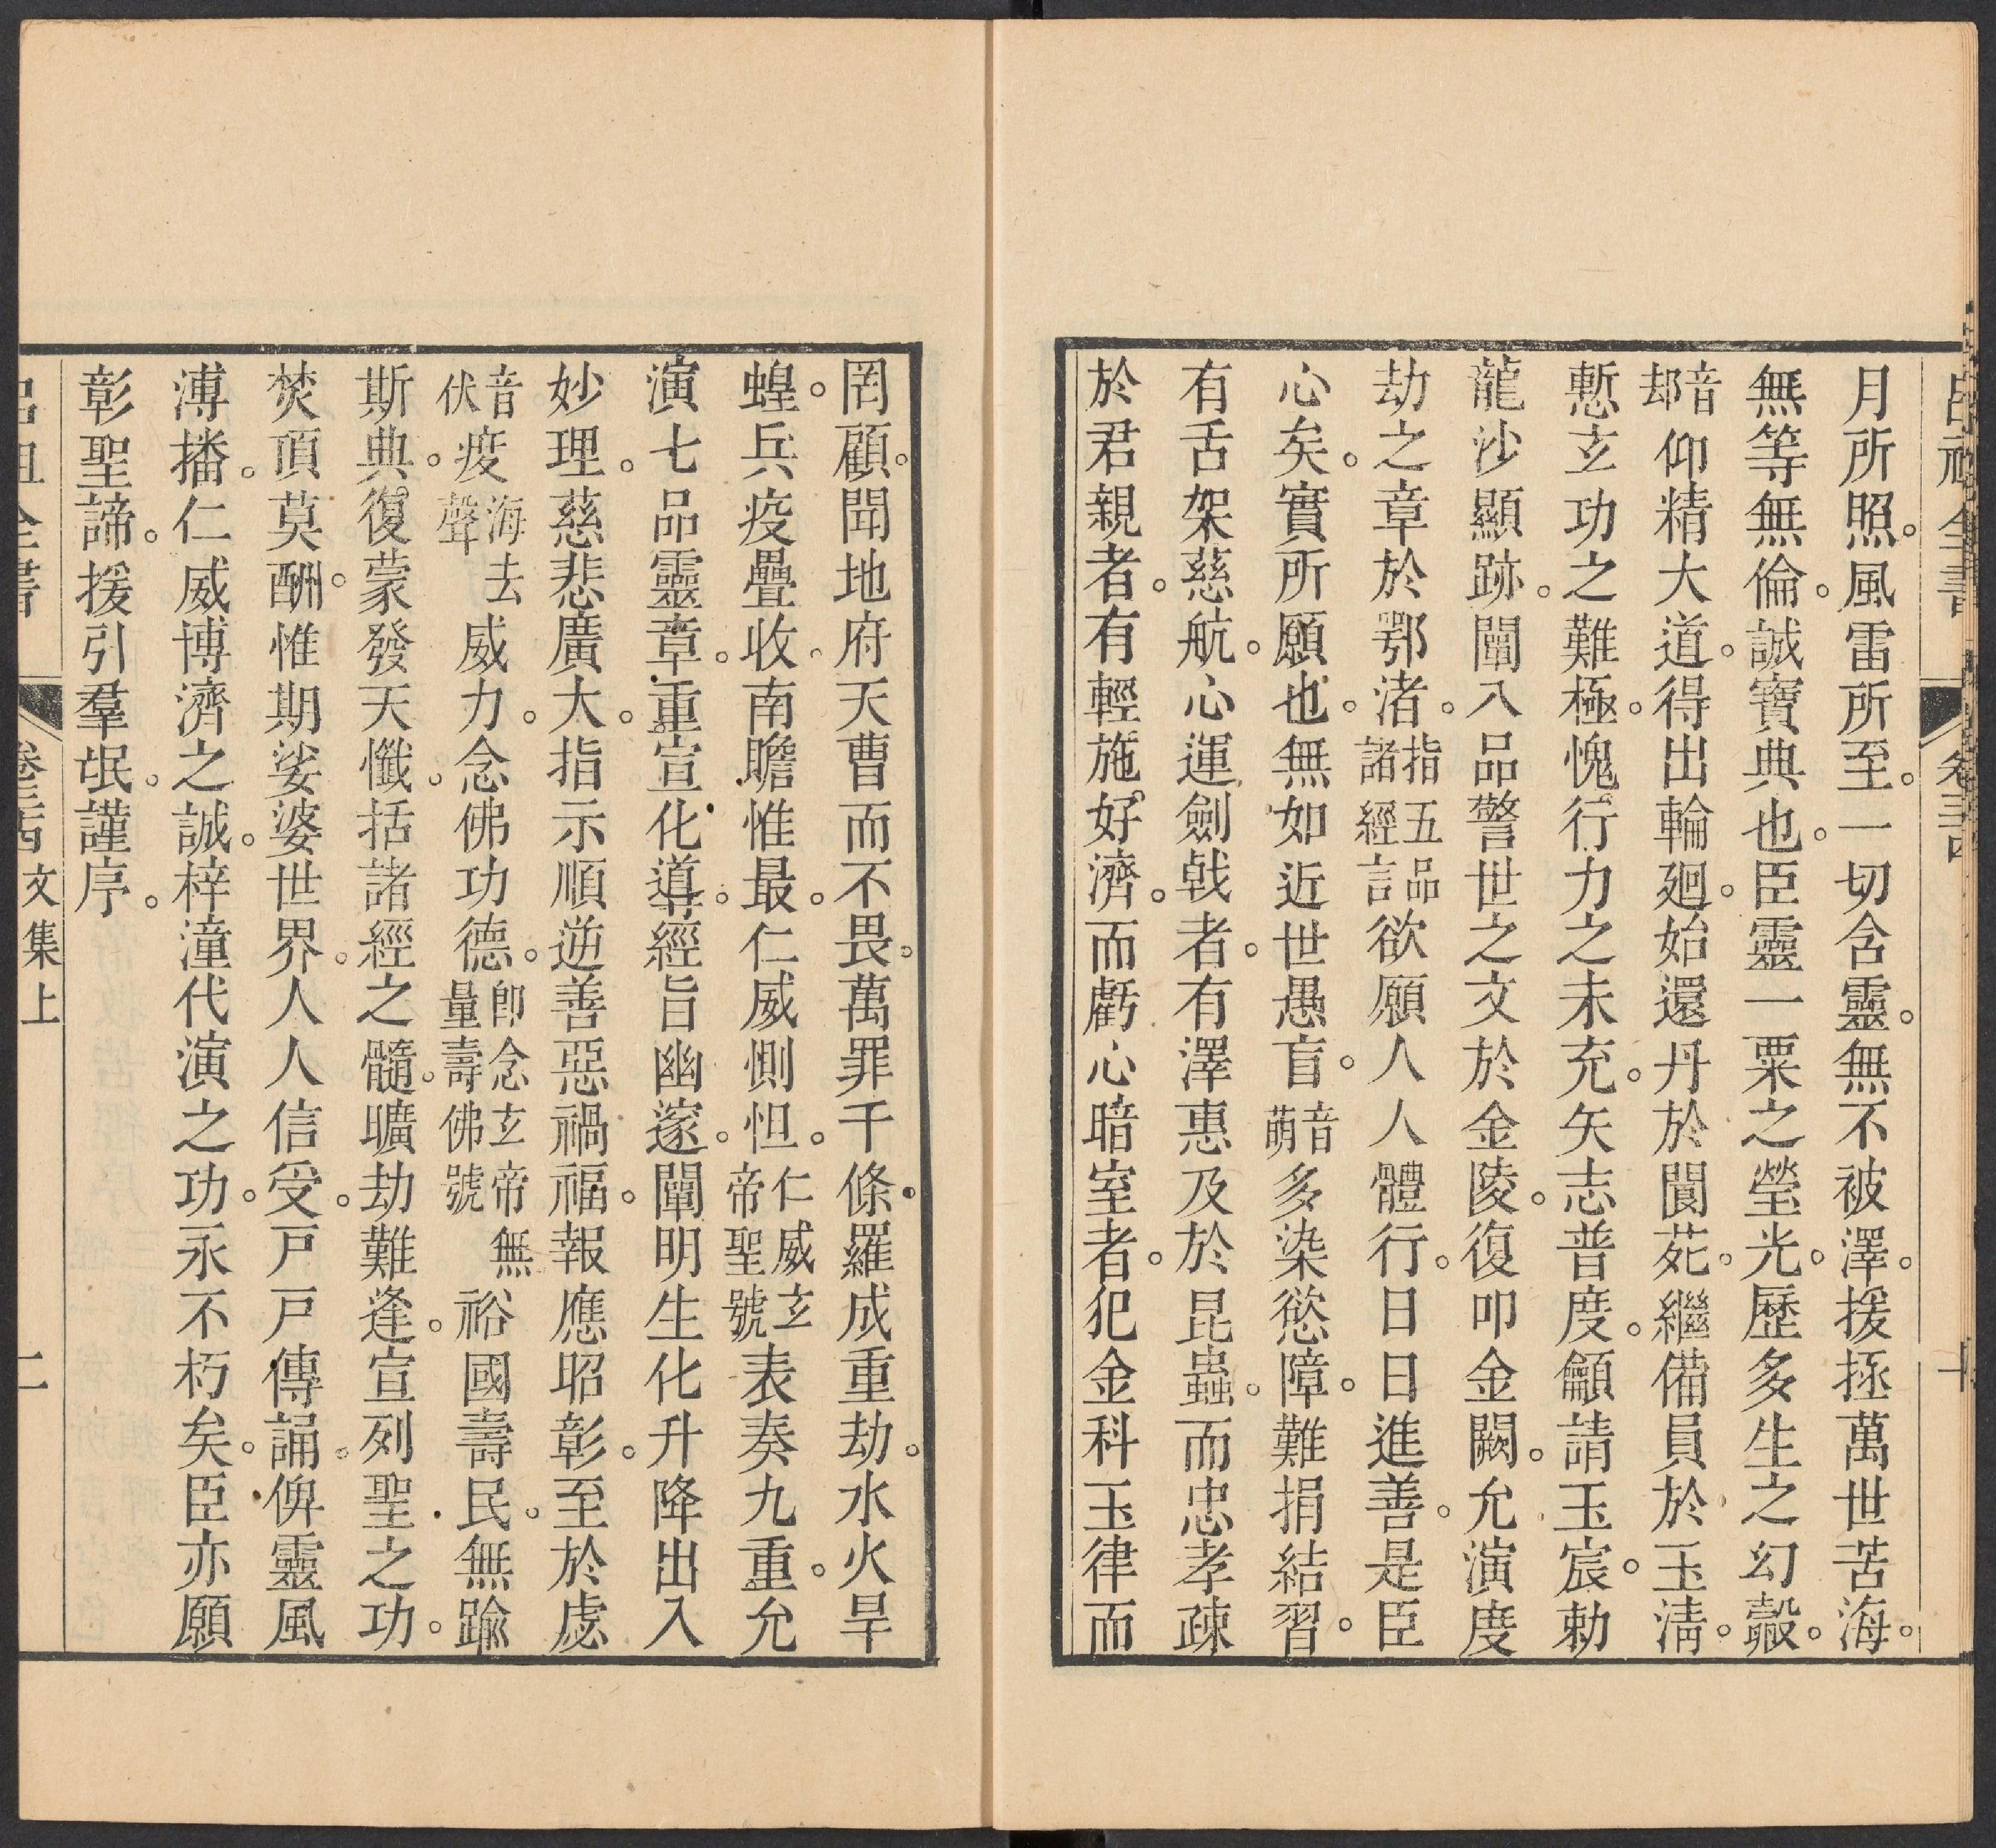 呂祖全書 卷三十四
月所照。風雷所至。一切含靈。無不被澤。援拯萬世苦海。
無等無倫。誠寶典也。臣靈一粟之瑩光。歷多生之幻㲉。
音却仰精大道。得出輪廻。始還丹於閬苑。繼備員於玉淸。
慙玄功之難極。愧行力之未充。矢志普度。龥請玉宸。勅
龍沙顯跡。闡八品警世之文於金陵。復叩金闕。允演度
劫之章於鄂渚。指五品諸經言欲願人人體行。日日進善。是臣
心矣。實所願也。無如近世愚盲。音萌多染慾障。難捐結習。
有舌架慈航。心運劍戟者。有澤惠及於昆蟲。而忠孝疎
於君親者。有輕施好濟。而虧心暗室者。犯金科玉律而
罔顧。聞地府天曹而不畏。萬罪千條。羅成重劫。水火旱
蝗。兵疫疊收。南瞻惟最。仁威惻怛。仁威玄帝聖號表奏九重。允
演七品靈章。重宣化導。經旨幽邃。闡明生化升降出入
妙理。慈悲廣大。指示順逆善惡禍福。報應昭彰。至於虙
音伏疫海去聲威力。念佛功德。卽念玄帝無量壽佛號裕國壽民。無踰
斯典。復蒙發天懺。括諸經之髓。曠劫難逢。宣列聖之功。
焚頂莫酬。惟期娑婆世界。人人信受。戸戸傳誦。俾靈風
溥播。仁威博濟之誠。梓潼代演之功。永不朽矣。臣亦願
彰聖諦。援引羣氓。謹序。
呂祖全書 卷三十四 文集上 二